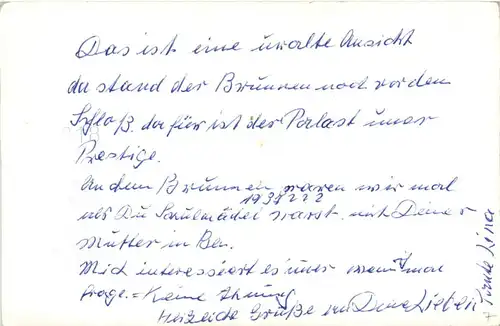 Das ist eine uralte Ansicht
da stand der Brunnen noch vor dem
Schloß. dafür ist der Palast unser
Prestige.
An dem Brunnen waren wir mal
1938???
als Du Schulmädel warst. mit Deiner
Mutter in Bln.
Mich interessiert es immer wenn ich mal
frage. = Keine Ahnung
Herzliche Grüße an Deine Lieben
Tante Lina